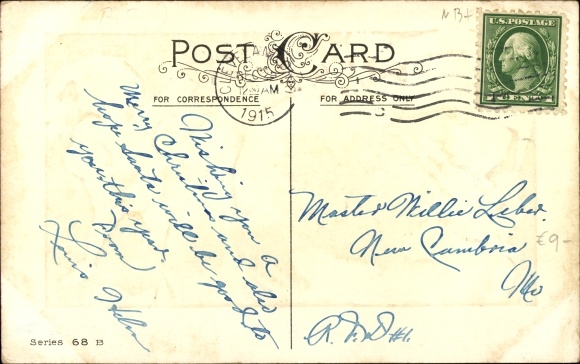 POST CARD
U.S. POSTAGE
CLEVELAND
AM
1915
FOR CORRESPONDENCE
FOR ADDRESS ONLY
Wishing you a
Merry Christmas and also
hope Santa will be good to
you this year.
From
Helen
Master Willie
New Cambria
Mo
R.F.D #1.
£9-
Series 68 B